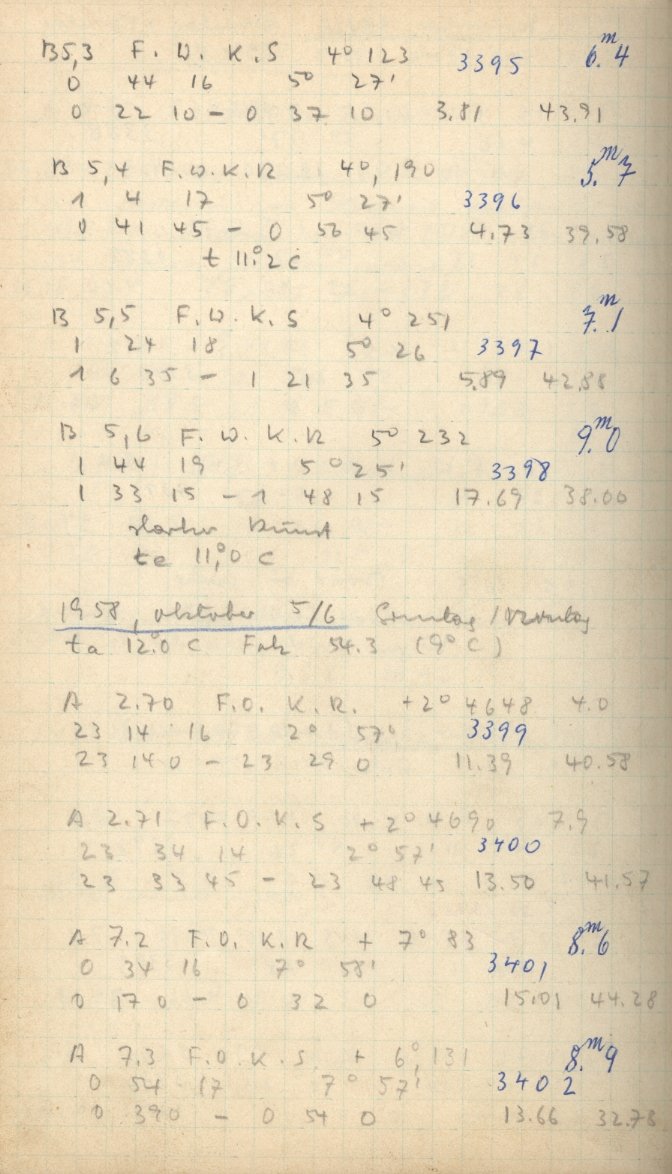 B5,3 F. W. K. S 4° 123 3395 6.ᵐ4
0 44 16 5° 27'
0 22 10 – 0 37 10 3.81 43.91
B 5,4 F. W. K. R 4°, 190 5.ᵐ7
1 4 17 5° 27' 3396
0 41 45 – 0 56 45 4.73 39.58
t 11°.2 C
B 5,5 F. W. K. S 4° 251 7.ᵐ1
1 24 18 5° 26 3397
1 6 35 – 1 21 35 5.89 42.88
B 5,6 F. W. K. R 5° 232 9.ᵐ0
1 44 19 5° 25' 3398
1 33 15 – 1 48 15 17.69 38.00
starker Dunst
te 11,°0 C
1958, Oktober 5/6 Sonntag / Montag
ta 12°.0 C Fok 54.3 (9° C)
A 2.70 F. O. K. R. +2° 4648 4.0
23 14 16 2° 57' 3399
23 14 0 – 23 29 0 11.39 40.58
A 2.71 F. O. K. S +2° 4690 7.9
23 34 14 2° 57' 3400
23 33 45 – 23 48 45 13.50 41.57
A 7.2 F. O. K. R + 7° 83 8.ᵐ6
0 34 16 7° 58' 3401
0 17 0 – 0 32 0 15.01 44.28
A 7.3 F. O. K. S. + 6°, 131 8.ᵐ9
0 54 17 7° 57' 3402
0 39 0 – 0 54 0 13.66 32.73